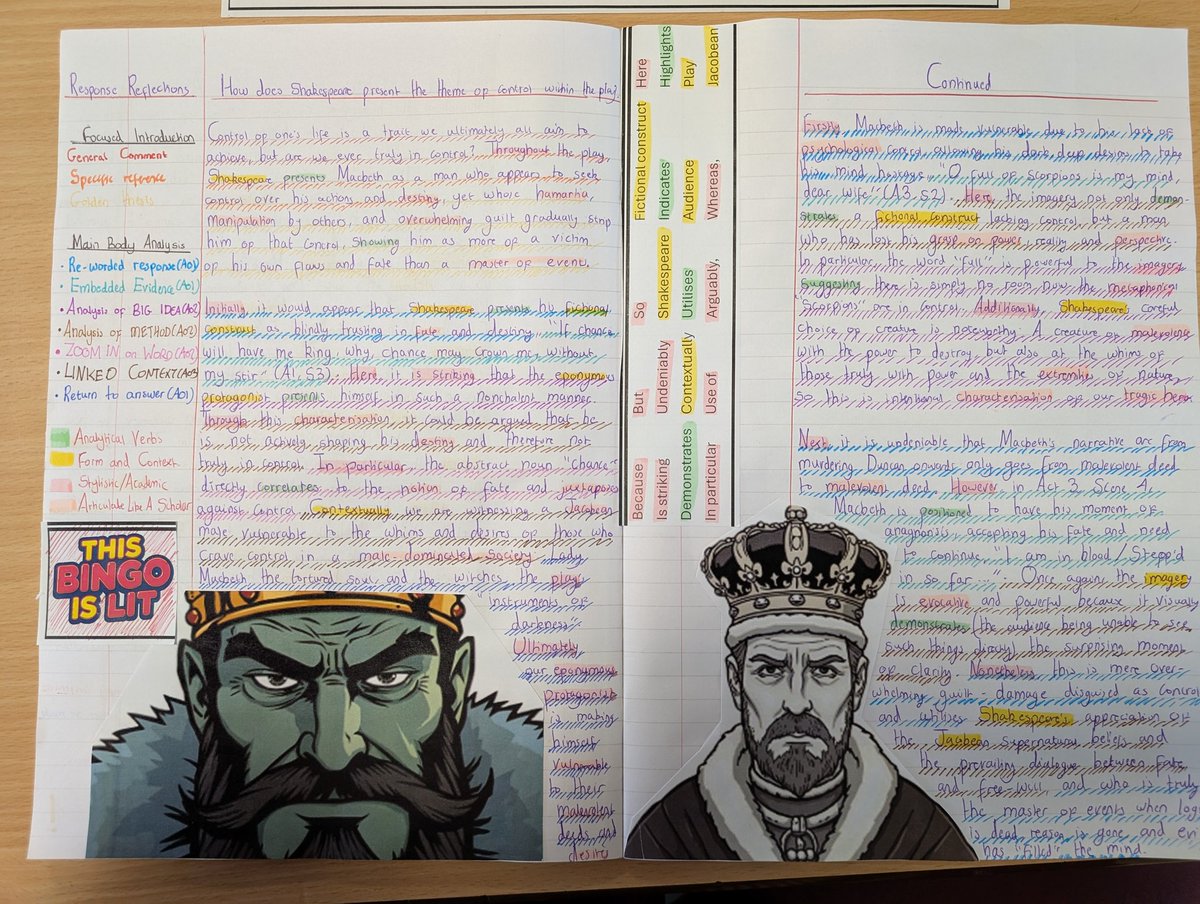 Response Reflections
Focused Introduction
General Comment
Specific reference
Golden thesis
Main Body Analysis
• Re-worded response (A01)
• Embedded Evidence (A01)
• Analysis of BIG IDEA (A02)
• Analysis of METHOD (A02)
• ZOOM IN on WORD (A02)
• LINKED CONTEXT (A03)
• Return to answer (A01)
Analytical Verbs
Form and Context
Stylistic/Academic
Articulate Like A Scholar
THIS
BINGO
IS LIT
How does Shakespeare present the theme of control within the play
Control of one's life is a trait we ultimately all aim to
achieve, but are we ever truly in control? Throughout the play
Shakespeare presents Macbeth as a man who appears to seek
control over his actions and destiny, yet whose hamartia,
manipulation by others, and overwhelming guilt gradually strip
him of that control, showing him as more of a victim
of his own flaws and fate than a master of event.
Initially it would appear that Shakespeare presents his fictional
construct as blindly trusting in fate and destiny "If chance
will have me king, why chance may crown me, without
my stir" (A1, S3). Here it is striking that the eponymous
protagonist presents himself in such a nonchalent manner.
Through this characterisation it could be argued that he
is not actively shaping his destiny and therefore not
truly in control. In particular, the abstract noun "chance"
directly correlates to the notion of fate and juxtaposes
against control. Contextually we are witnessing a Jacobean
male vulnerable to the whims and desires of those who
crave control in a male-dominated society Lady
Macbeth the tortured soul and the witches the play's
instruments of
darkness".
Ultimately
our eponymous
protagonist
is making
himself
vulnerable
to their
malevolent
deeds and
desires
Because But So Fictional construct Here
Is striking Undeniably Shakespeare Indicates Highlights
Demonstrates Contextually Utilises Audience Play
In particular Use of Arguably, Whereas, Jacobean
Continued
Firstly Macbeth is made vulnerable due to his lack of
psychological control allowing his dark deep desires to take
his mind hostage. "O full of Scorpions is my mind,
dear wife" (A3, S2). Here, the imagery not only demon-
strates a fictional construct lacking control but a man
who has lost his grasp on power, reality and perspective.
In particular, the word "full" is powerful to the imagery
suggesting there is simply no room now the metaphorical
"Scorpions" are in control. Additionally Shakespeare's careful
choice of creature is noteworthy. A creature of malevolence
with the power to destroy, but also at the whims of
those truly with power and the extremities of nature.
So this is intentional characterisation of our tragic hero.
Next it is undeniable that Macbeth's narrative arc from
murdering Duncan onwards only goes from malevolent deed
to malevolent deed. However in Act 3 Scene 4,
Macbeth is positioned to have his moment of
anagnorisis accepting his fate and need
to continue, "I am in blood / Stepp'd
in so far...". Once again the imagery
is evocative and powerful because it visually
demonstrates the audience being unable to see
such things directly the surprising moment
of clarity. Nonetheless this is mere over-
whelming guilt - damage disguised as control
and utilises Shakespeare's appreciation of
the Jacobean supernatural beliefs and
the prevailing dialogue between fate
and free-will and who is truly
the master of events when logic
is dead reason is gone and evil
has "filled" the mind.